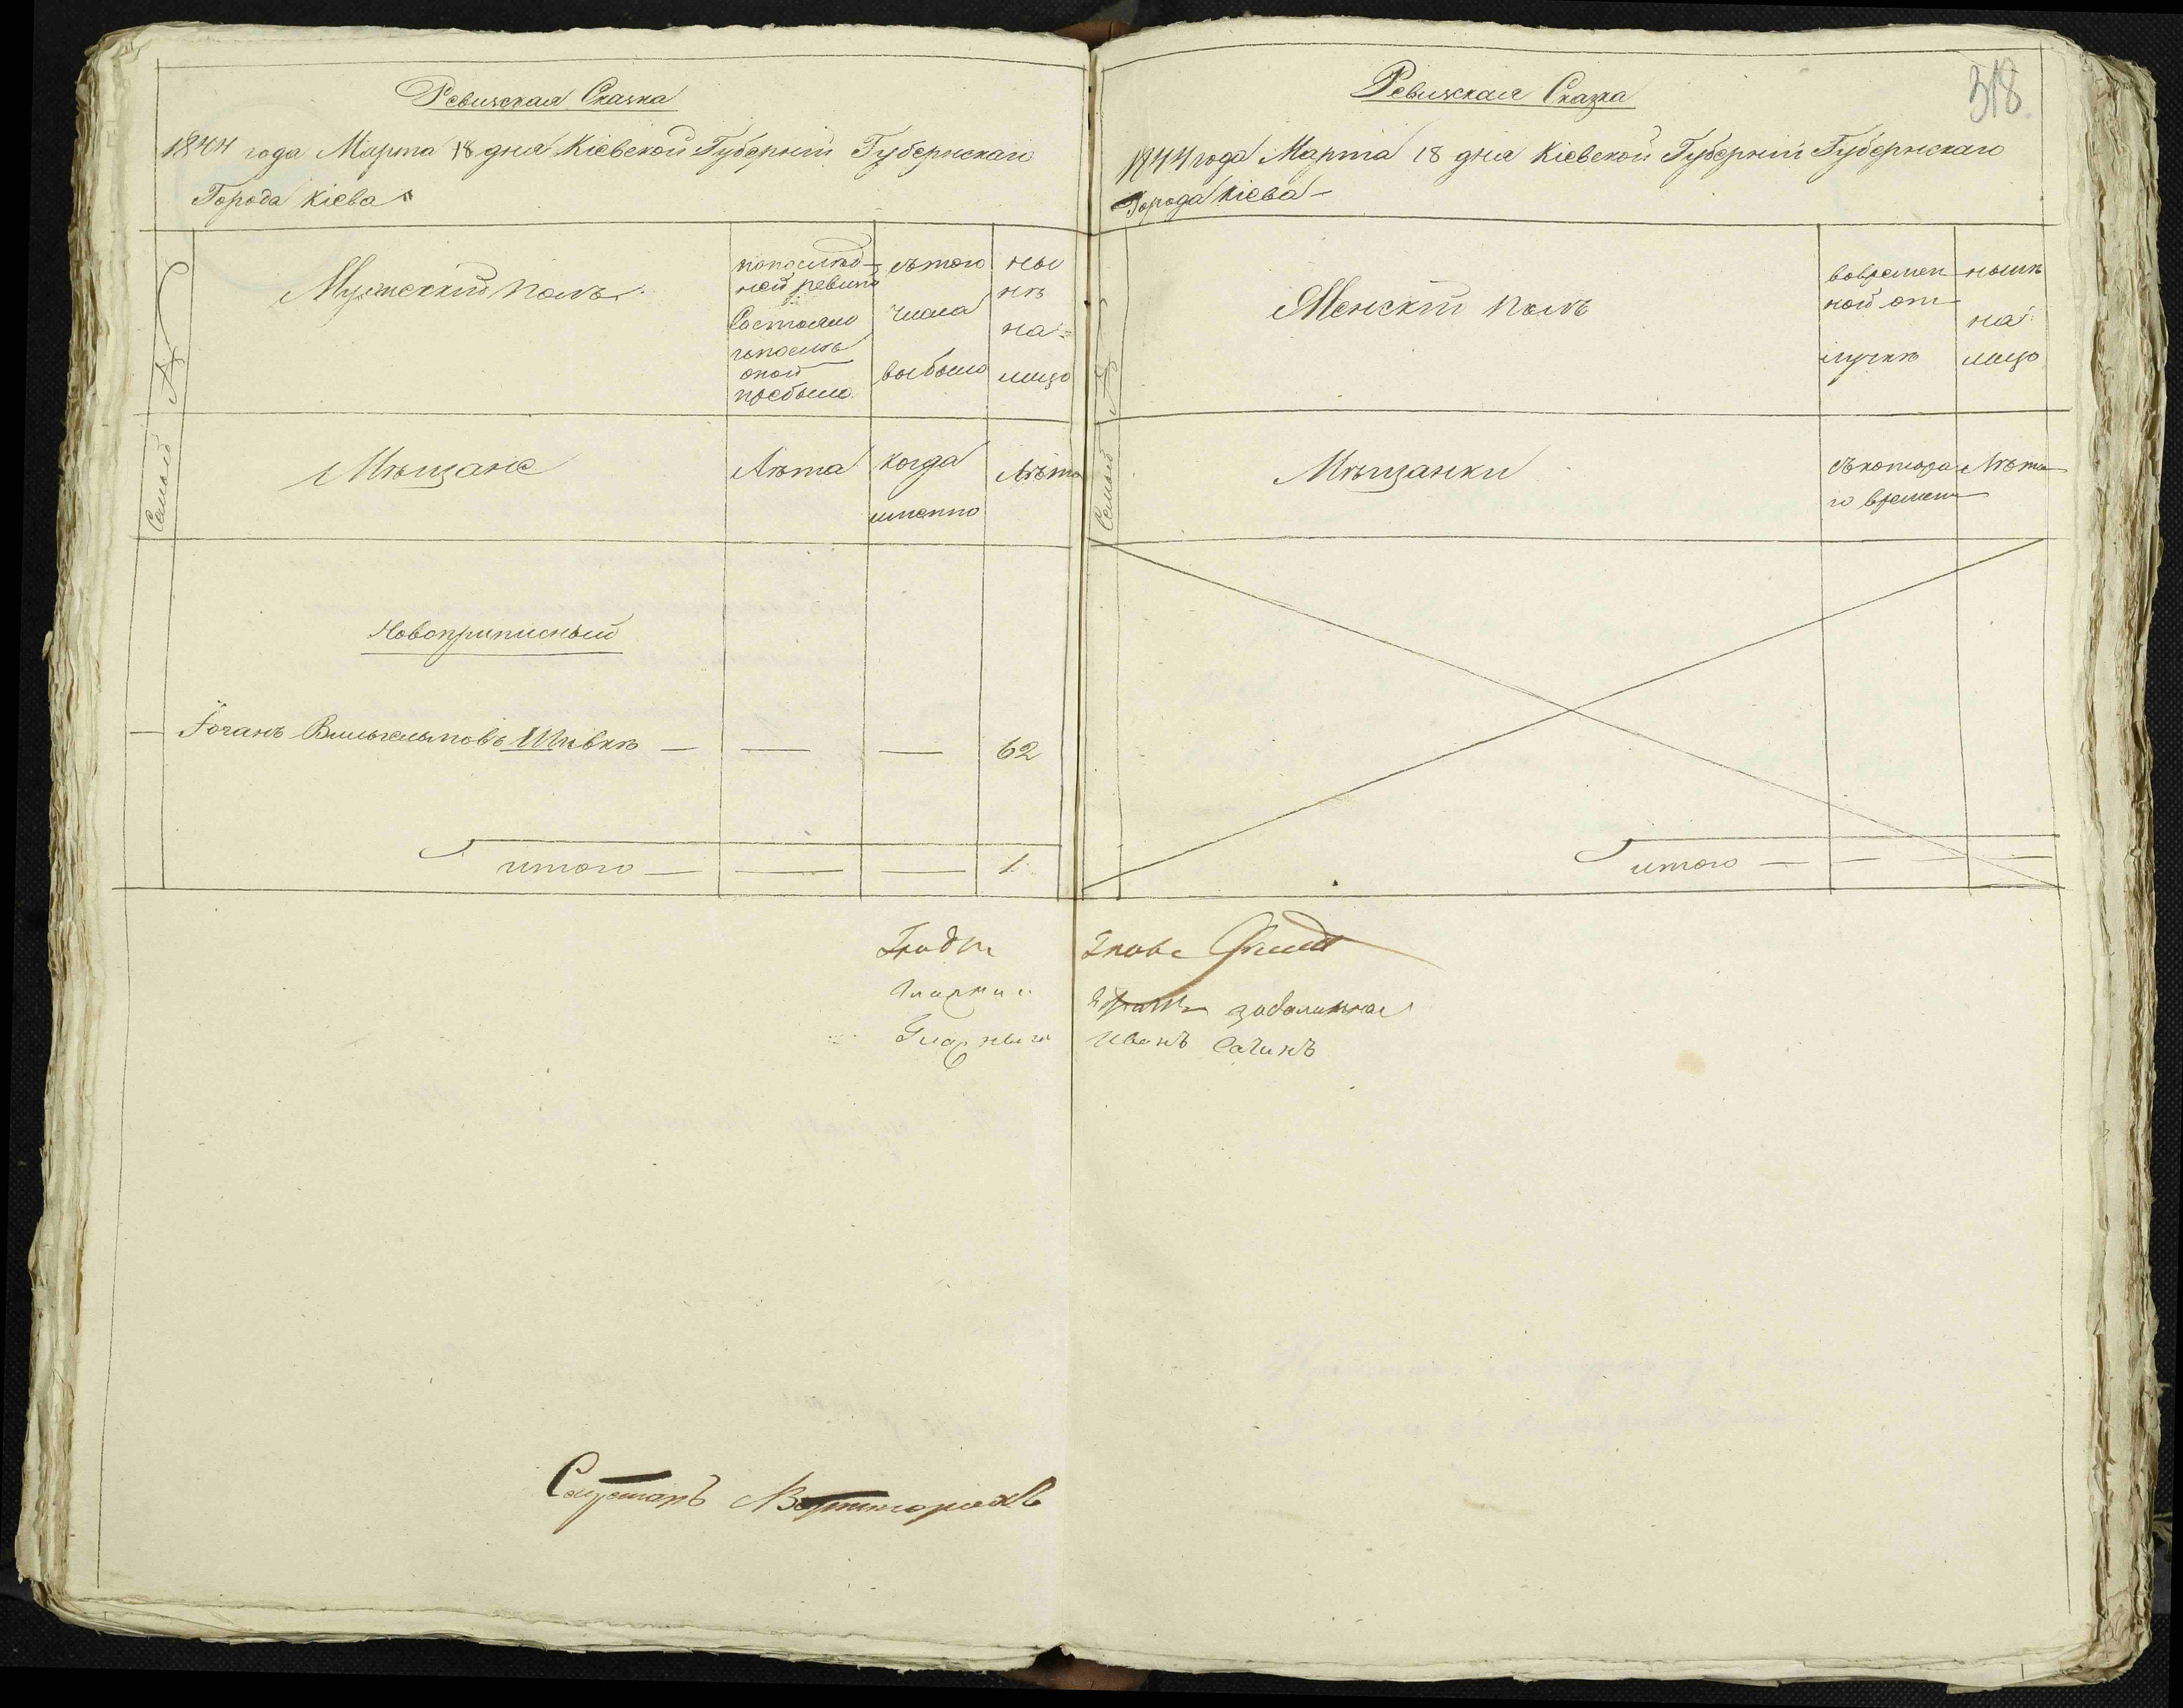 Ревизская Сказка
1844 года Марта 18 дня Кіевской Губерніи Губернскаго
Города Кіева
№
Семьи
Мужескій полъ
попослѣд-
ней ревизіи
Состояло
ипослѣ
оной
прибыло
Изтого
числа
выбыло
ны
нѣ
на=
лицо
Мѣщане
Лѣта
когда
именно
Лѣта
Новоприписный
Іоганъ Вильгельмовъ Шивке — — — 62
итого — — — 1
318
Ревизская Сказка
1844 года Марта 18 дня Кіевской Губерніи Губернскаго
Города Кіева
№
Семьи
Женскій полъ
вовремен
ной от
лучкѣ
нынѣ
на
лицо
Мѣщанки
съкотора
го времени
Лѣта
итого — — —
Гласный Иванъ